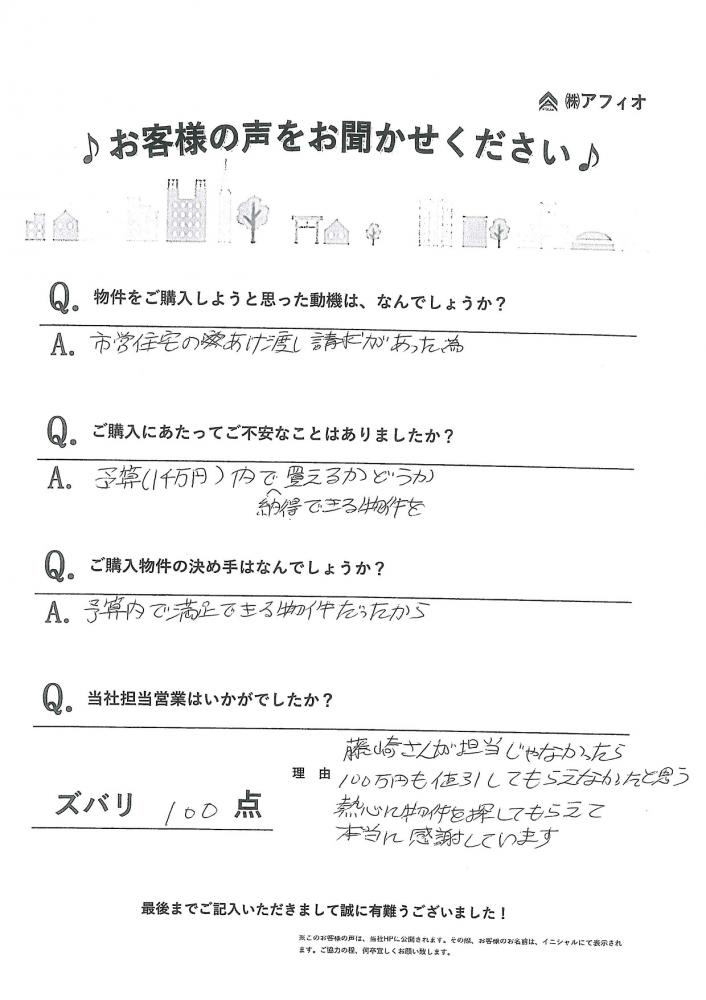 ㈱アフィオ
♪お客様の声をお聞かせください♪
Q. 物件をご購入しようと思った動機は、なんでしょうか？
A. 市営住宅のあけ渡し請求があった為
Q. ご購入にあたってご不安なことはありましたか？
A. 予算(1千万円)内で買えるかどうか
納得できる物件を
Q. ご購入物件の決め手はなんでしょうか？
A. 予算内で満足できる物件だったから
Q. 当社担当営業はいかがでしたか？
ズバリ 100 点
理由 藤崎さんが担当じゃなかったら
100万円も値引してもらえなかったと思う
熱心に物件を探してもらえて
本当に感謝しています
最後までご記入いただきまして誠に有難うございました！
※このお客様の声は、当社HPに公開されます。その際、お客様のお名前は、イニシャルにて表示され
ます。ご協力の程、何卒宜しくお願い致します。